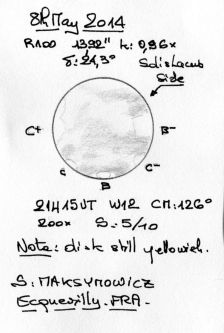 8th May 2014
R100 13.92" k: 0,96x
δ: 24,3°
Sdislocus
Side
C+
B-
C
B
C-
21H15UT W12 CM: 126°
200x S: 5/10
Note: disk still yellowish.
S: MAKSYMOWICZ
Ecquevilly. FRA-